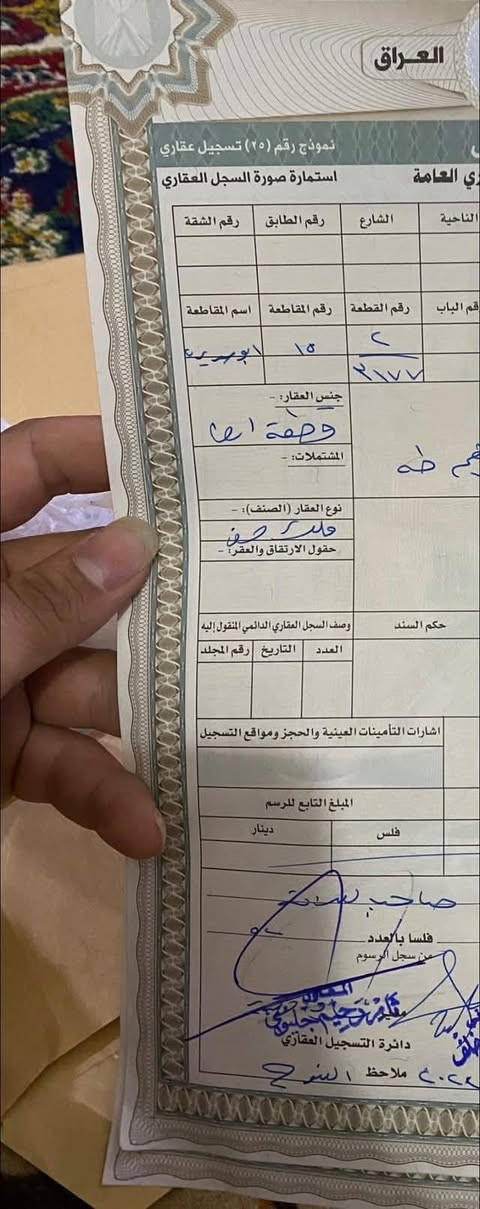 العراق
نموذج رقم (٢٥) تسجيل عقاري
ري العامة
استمارة صورة السجل العقاري
الناحية الشارع رقم الطابق رقم الشقة
قم الباب رقم القطعة رقم المقاطعة اسم المقاطعة
٢ ١٥
٣١٧٧
جنس العقار: -
قطعة
المشتملات: -
طه
نوع العقار (الصنف): -
ملك صرف
حقول الارتفاق والعقر: -
حكم السند وصف السجل العقاري الدائمي المنقول إليه
العدد التاريخ رقم المجلد
اشارات التأمينات العينية والحجز ومواقع التسجيل
المبلغ التابع للرسم
فلس دينار
صاحب
فلسا بالعدد
من سجل الرسوم
دائرة التسجيل العقاري
ملاحظ